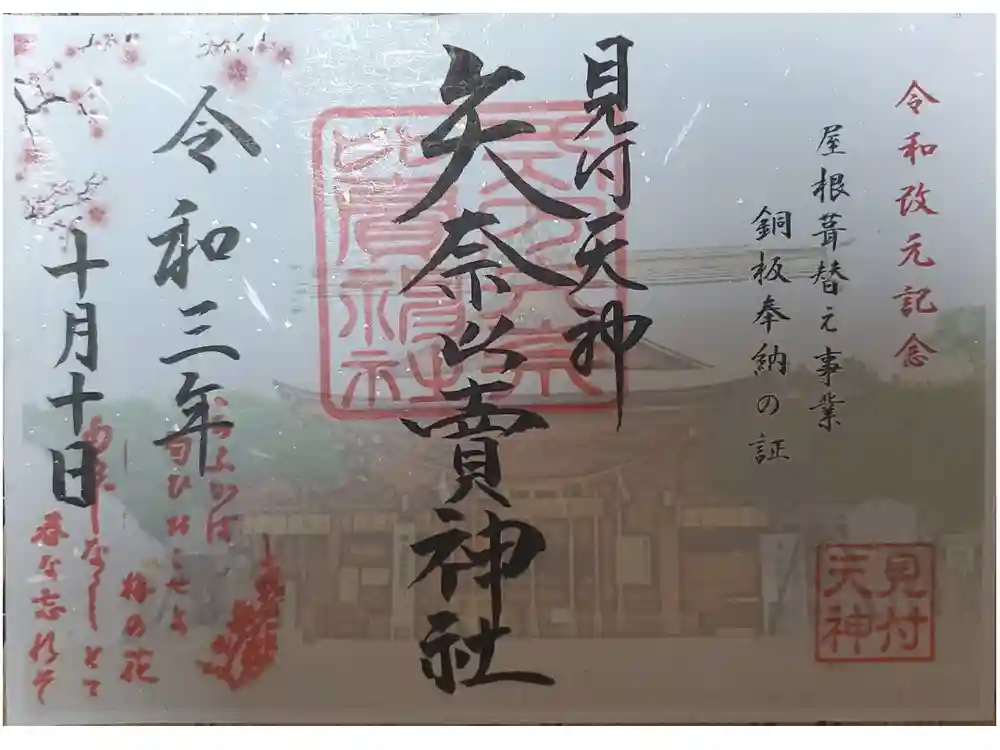 令和改元記念
屋根葺替え事業
銅板奉納の証
見付天神
見付天神
矢奈比賣神社
令和三年
十月十日
ふかば
匂ひおこせよ
梅の花
なしとて
春な忘れそ